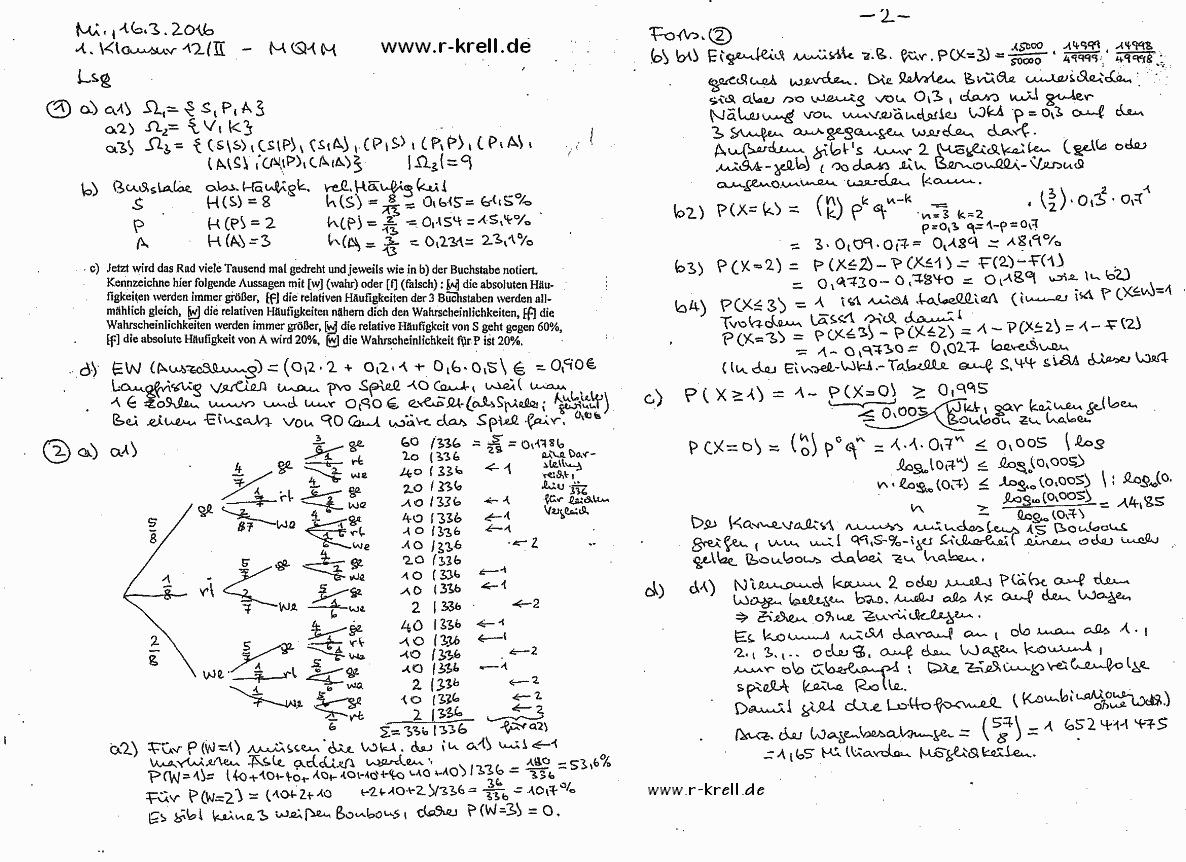 Mi., 16.3.2016
1. Klausur 12/II - MQ1M www.r-krell.de
Lsg
① a) a1) Ω₁ = {S, P, A}
a2) Ω₂ = {V, K}
a3) Ω₃ = {(S|S), (S|P), (S|A), (P|S), (P|P), (P|A),
(A|S), (A|P), (A|A)} |Ω₃| = 9
b) Buchstabe abs. Häufigk. rel. Häufigkeit
S H(S) = 8 h(S) = 8/13 = 0,615 = 61,5%
P H(P) = 2 h(P) = 2/13 = 0,154 = 15,4%
A H(A) = 3 h(A) = 3/13 = 0,231 = 23,1%
c) Jetzt wird das Rad viele Tausend mal gedreht und jeweils wie in b) der Buchstabe notiert.
Kennzeichne hier folgende Aussagen mit [w] (wahr) oder [f] (falsch) : [w] die absoluten Häu-
figkeiten werden immer größer, [f] die relativen Häufigkeiten der 3 Buchstaben werden all-
mählich gleich, [w] die relativen Häufigkeiten nähern dich den Wahrscheinlichkeiten, [f] die
Wahrscheinlichkeiten werden immer größer, [w] die relative Häufigkeit von S geht gegen 60%,
[f] die absolute Häufigkeit von A wird 20%, [w] die Wahrscheinlichkeit für P ist 20%.
d) EW (Auszahlung) = (0,2·2 + 0,2·1 + 0,6·0,5) € = 0,90 €
Langfristig verliert man pro Spiel 10 Cent, weil man
1 € zahlen muss und nur 0,90 € erhält (als Spieler; Anbieter gewinnt)
Bei einem Einsatz von 90 Cent wäre das Spiel fair.
② a) a1)
5/8 ge
4/7 ge
3/6 ge 60/336 = 5/28 = 0,1786
rt 20/336
2/6 we 40/336 ← 1
eine Dar-
stellung
reicht,
hier /336
für leichten
Vergleich
1/7 rt
4/6 ge 20/336
we 10/336 ← 1
2/7 we
ge 40/336 ← 1
rt 10/336 ← 1
we 10/336 ← 2
1/8 rt
5/7 ge
ge 20/336
we 10/336 ← 1
2/7 we
5/6 ge 10/336 ← 1
1/6 we 2/336 ← 2
2/8 we
5/7 ge
4/6 ge 40/336 ← 1
rt 10/336 ← 1
we 10/336 ← 2
1/7 rt
5/6 ge 10/336 ← 1
we 2/336 ← 2
1/7 we
5/6 ge 10/336 ← 2
1/6 rt 2/336 ← 3
Σ = 336/336 für a2)
a2) Für P(W=1) müssen die Wkt. der in a1) mit ← 1
markierten Äste addiert werden:
P(W=1) = (40+10+40+10+10+10+40+10+10)/336 = 180/336 = 53,6%
Für P(W=2) = (10+2+10 +2+10+2)/336 = 36/336 = 10,7%
Es gibt keine 3 weißen Bonbons, daher P(W=3) = 0.
-2-
Forts. ②
b) b1) Eigentlich müsste z.B. für P(X=3) = 15000/50000 · 14999/49999 · 14998/49998
gerechnet werden. Die letzten Brüche unterscheiden
sich aber so wenig von 0,3, dass mit guter
Näherung von unveränderter Wkt p = 0,3 auf den
3 Stufen ausgegangen werden darf.
Außerdem gibt's nur 2 Möglichkeiten (gelb oder
nicht-gelb), so dass ein Bernoulli-Versuch
angenommen werden kann.
b2) P(X=k) = (n k) p^k q^(n-k) = (3 2) · 0,3² · 0,7¹
n=3 k=2
p=0,3 q=1-p=0,7
= 3·0,09·0,7 = 0,189 = 18,9%
b3) P(X=2) = P(X≤2) - P(X≤1) = F(2) - F(1)
= 0,9730 - 0,7840 = 0,189 wie in b2)
b4) P(X≤3) = 1 ist nicht tabelliert (immer ist P(X≤n)=1
Trotzdem lässt sich damit
P(X=3) = P(X≤3) - P(X≤2) = 1 - P(X≤2) = 1 - F(2)
= 1 - 0,9730 = 0,027 berechnen
(In der Einzel-Wkt.-Tabelle auf S. 44 steht dieser Wert
c) P(X≥1) = 1 - P(X=0) ≥ 0,995
≤ 0,005 Wkt, gar keinen gelben
Bonbon zu haben
P(X=0) = (n 0) p⁰ qⁿ = 1·1·0,7ⁿ ≤ 0,005 | log
log₁₀(0,7ⁿ) ≤ log₁₀(0,005)
n·log₁₀(0,7) ≤ log₁₀(0,005) | : log₁₀(0,
n ≥ log₁₀(0,005)/log₁₀(0,7) = 14,85
Der Karnevalist muss mindestens 15 Bonbons
greifen, um mit 99,5-%-iger Sicherheit einen oder mehr
gelbe Bonbons dabei zu haben.
d) d1) Niemand kann 2 oder mehr Plätze auf dem
Wagen belegen bzw. mehr als 1x auf den Wagen
⇒ Ziehen ohne Zurücklegen.
Es kommt nicht darauf an, ob man als 1.,
2., 3., .. oder 8. auf den Wagen kommt,
nur ob überhaupt: Die Ziehungsreihenfolge
spielt keine Rolle.
Damit gilt die Lottoformel (Kombinationen ohne Wdh.)
Anz. der Wagenbesatzungen = (57 8) = 1 652 411 475
= 1,65 Milliarden Möglichkeiten.
www.r-krell.de